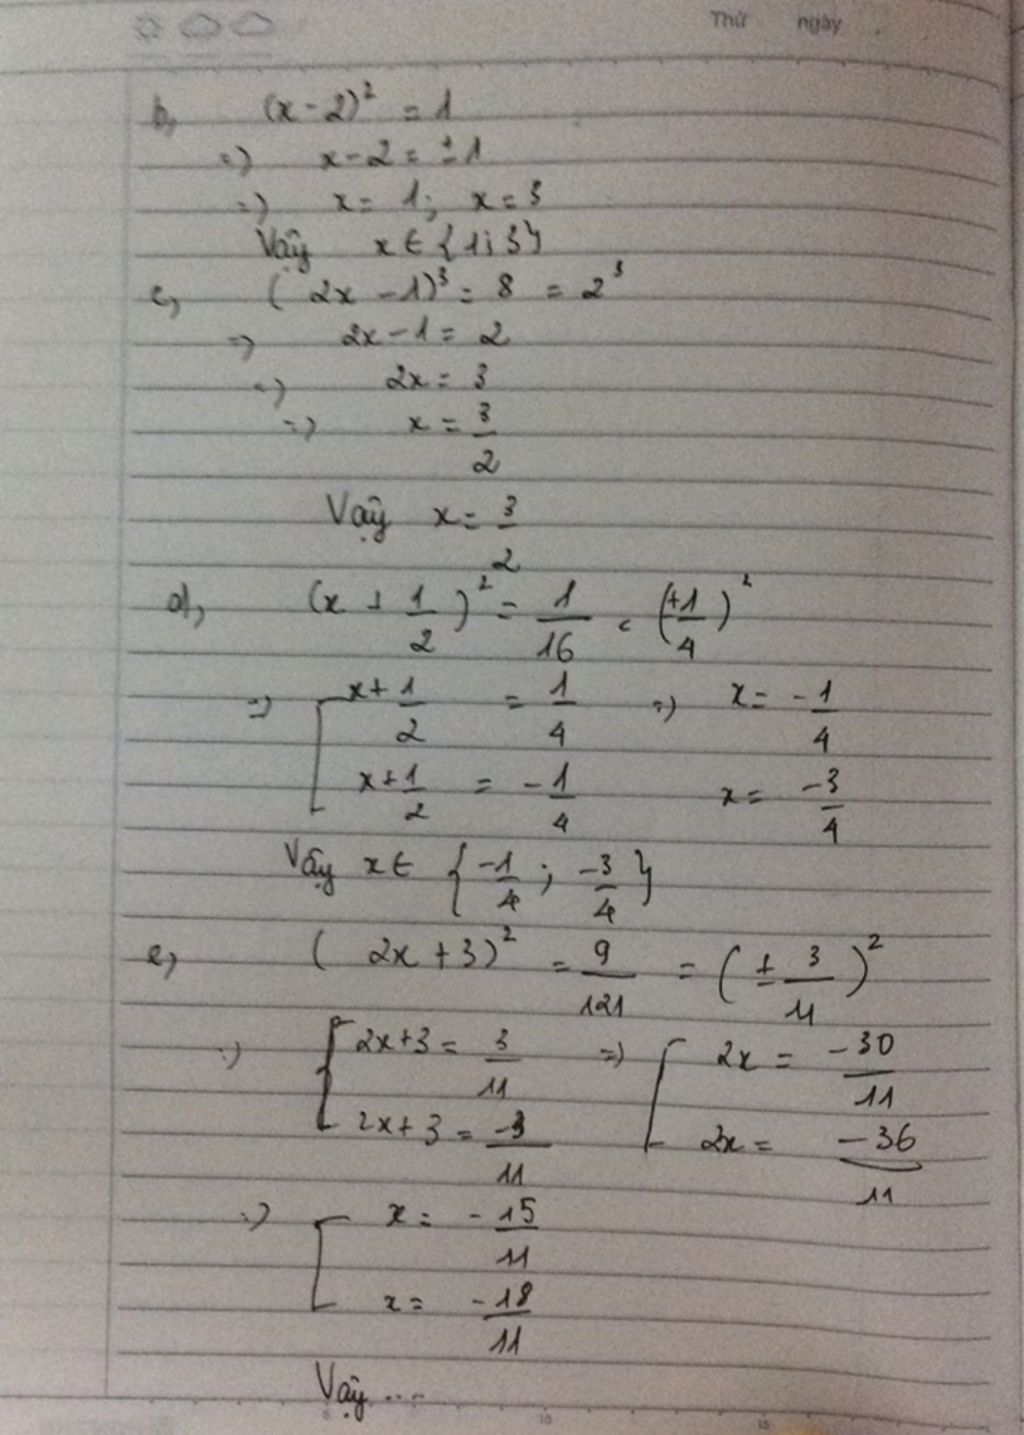 Thứ ngày
b, (x - 2)² = 1
=) x - 2 = ±1
=) x = 1; x = 3
Vậy x ∈ {1; 3}
c, (2x - 1)³ = 8 = 2³
=) 2x - 1 = 2
=) 2x = 3
=) x = 3/2
Vậy x = 3/2
d, (x + 1/2)² = 1/16 = (±1/4)²
=) [ x + 1/2 = 1/4 =) x = -1/4
x + 1/2 = -1/4 x = -3/4
Vậy x ∈ {-1/4; -3/4}
e, (2x + 3)² = 9/121 = (± 3/11)²
=) [ 2x + 3 = 3/11 =) [ 2x = -30/11
2x + 3 = -3/11 2x = -36/11
=) [ x = -15/11
x = -18/11
Vậy ....
5 10 15